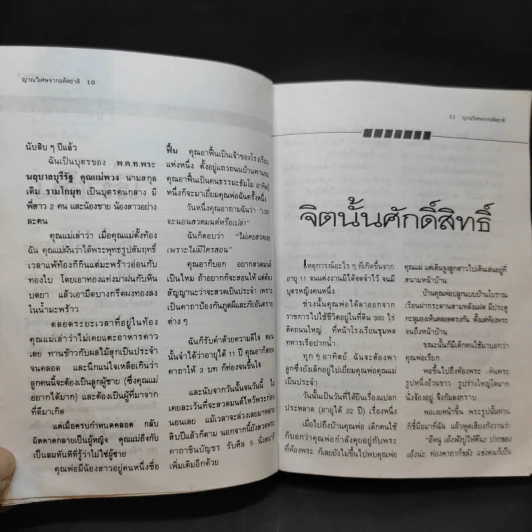 ญาณวิเศษจากอดีตชาติ 10
นับสิบ ๆ ปีแล้ว
ฉันเป็นบุตรของ พ.ต.ท.พระ
นฤบาลบุรีรัฐ คุณแม่พวง นามสกุล
เดิม รามโกมุท เป็นบุตรคนกลาง มี
พี่สาว 2 คน และน้องชาย น้องสาวอย่าง
ละคน
คุณแม่เล่าว่า เมื่อคุณแม่ตั้งท้อง
ฉัน คุณแม่ฝันว่าได้พระพุทธรูปสัมฤทธิ์
เวลาแพ้ท้องก็กินแต่มะพร้าวอ่อนกับ
ทองใบ โดยเอาทองแท่งมาฝนกับหิน
บดยา แล้วเอามีดบางกรีดผงทองลง
ในน้ำมะพร้าว
ตลอดระยะเวลาที่อยู่ในท้อง
คุณแม่เล่าว่าไม่เคยแตะอาหารคาว
เลย ทานข้าวกับผลไม้ลูกเป็นประจำ
จนคลอด และนึกแน่ใจเหลือเกินว่า
ลูกคนนี้จะต้องเป็นลูกผู้ชาย (ซึ่งคุณแม่
อยากได้มาก) และต้องเป็นผู้ที่มาจาก
ที่ดีมาเกิด
แต่เมื่อครบกำหนดคลอด กลับ
ผิดคาดกลายเป็นผู้หญิง คุณแม่ถึงกับ
เป็นลมทันทีที่รู้ว่าไม่ใช่ผู้ชาย
คุณพ่อมีน้องสาวอยู่คนหนึ่งชื่อ
ฟื้น คุณอาฟื้นเป็นเจ้าของโรงเรียน
แห่งหนึ่ง ตั้งอยู่แถวถนนบ้านพานถม
คุณอาฟื้นเป็นคนธรรมะธัมโม อาทิตย์
หนึ่งก็จะมาเยี่ยมคุณพ่อฉันครั้งหนึ่ง
วันหนึ่งคุณอาถามฉันว่า "เวลา
จะนอนสวดมนต์หรือเปล่า"
ฉันก็ตอบว่า "ไม่เคยสวดเลย
เพราะไม่มีใครสอน"
คุณอาก็บอก อยากสวดมนต์
เป็นไหม ถ้าอยากก็จะสอนให้ แต่ต้อง
สัญญานะว่าจะสวดเป็นประจำ เพราะ
เป็นคาถาป้องกันภูตผีและภัยอันตราย
ต่าง ๆ
ฉันก็รับคำด้วยความดีใจ ตอน
นั้นจำได้ว่าอายุได้ 11 ปี คุณอาก็สอน
คาถาให้ 3 บท ก็ท่องจนขึ้นใจ
และนับจากวันนั้นจนวันนี้ ไม่
เคยละเว้นที่จะสวดมนต์ไหว้พระก่อน
นอนเลย แม้เวลาจะล่วงเลยมาหลาย
สิบปีแล้วก็ตาม นอกจากนี้ยังสวดพระ
คาถาชินบัญชร วันศีล 5
เพิ่มเติมอีกด้วย
11 ญาณวิเศษจากอดีตชาติ
จิตนั้นศักดิ์สิทธิ์
เหตุการณ์อะไร ๆ ที่เกิดขึ้นจาก
อายุ 11 จนแต่งงานมิได้จดจำไว้ จนมี
บุตรหญิงคนหนึ่ง
ช่วงนั้นคุณพ่อได้ลาออกจาก
ราชการไปใช้ชีวิตอยู่ในที่ดิน 300 ไร่
ติดถนนใหญ่ ที่หน้าโรงเรียนชุมพล
ทหารเรือปากน้ำ
ทุก ๆ อาทิตย์ ฉันจะต้องพา
ลูกซึ่งยังเล็กอยู่ไปเยี่ยมคุณพ่อคุณแม่
เป็นประจำ
วันนั้นเป็นวันที่ได้ยินเรื่องแปลก
ประหลาด (อายุได้ 22 ปี) เรื่องหนึ่ง
เมื่อไปถึงบ้านคุณพ่อ เด็กคนใช้
ก็บอกว่าคุณพ่อกำลังคุยอยู่กับพระ
ที่ห้องพระ ก็เลยยังไม่ขึ้นไปพบคุณพ่อ
คุณแม่ แต่เดินจูงลูกสาวไปเดินเล่นอยู่ที่
สนามหน้าบ้าน
บ้านคุณพ่อปลูกแบบบ้านโบราณ
จนถึงหน้าบ้าน
ขณะนั้นก็มีเด็กคนใช้มาบอกว่า
คุณพ่อเรียก
พอขึ้นไปถึงห้องพระ เห็นพระ
รูปหนึ่งอ้วนขาว รูปร่างใหญ่โตมาก
นั่งจ้องอยู่ จึงก้มลงกราบ
พอเงยหน้าขึ้น พระรูปนั้นท่าน